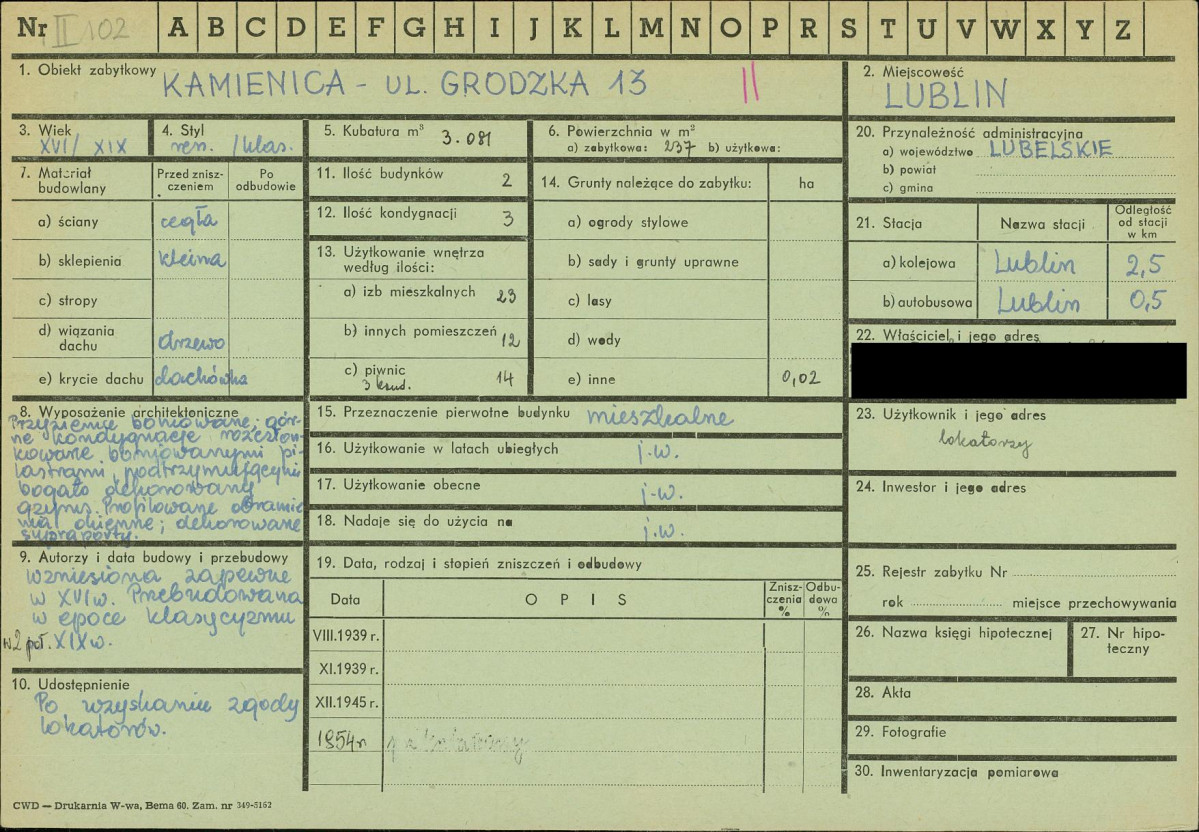 Nr II 102 A B C D E F G H I J K L M N O P R S T U V W X Y Z
1. Obiekt zabytkowy KAMIENICA - UL. GRODZKA 13 ||
2. Miejscowość
LUBLIN
3. Wiek
XVI/ XIX
4. Styl
ren. /klas.
5. Kubatura m³ 3.081
6. Powierzchnia w m²
a) zabytkowa: 237 b) użytkowa:
7. Materiał budowlany
Przed zniszczeniem
Po odbudowie
a) ściany cegła
b) sklepienia kleina
c) stropy
d) wiązania dachu drzewo
e) krycie dachu dachówka
8. Wyposażenie architektoniczne
Przyziemie boniowane; gór-
ne kondygnacje rozczłon-
kowane boniowanymi pi-
lastrami, podtrzymującymi
bogato dekorowany
gzyms. Profilowane obramie
nia okienne; dekorowane
supraporty.
9. Autorzy i data budowy i przebudowy
wzniesiona zapewne
w XVI w. Przebudowana
w epoce klasycyzmu
w 2 poł. XIX w.
10. Udostępnienie
Po uzyskaniu zgody
lokatorów.
11. Ilość budynków 2
12. Ilość kondygnacji 3
13. Użytkowanie wnętrza
według ilości:
a) izb mieszkalnych 23
b) innych pomieszczeń 12
c) piwnic 14
3 kond.
14. Grunty należące do zabytku: ha
a) ogrody stylowe
b) sady i grunty uprawne
c) lasy
d) wody
e) inne 0,02
15. Przeznaczenie pierwotne budynku mieszkalne
16. Użytkowanie w latach ubiegłych j.w.
17. Użytkowanie obecne j.w.
18. Nadaje się do użycia na j.w.
19. Data, rodzaj i stopień zniszczeń i odbudowy
Data
O P I S
Znisz-
czenia
%
Odbu-
dowa
%
VIII.1939 r.
XI.1939 r.
XII.1945 r.
1954 r
20. Przynależność administracyjna
a) województwo LUBELSKIE
b) powiat
c) gmina
21. Stacja
Nazwa stacji
Odległość
od stacji
w km
a) kolejowa Lublin 2,5
b) autobusowa Lublin 0,5
22. Właściciel i jego adres
23. Użytkownik i jego adres
lokatorzy
24. Inwestor i jego adres
25. Rejestr zabytku Nr
rok miejsce przechowywania
26. Nazwa księgi hipotecznej
27. Nr hipo-
teczny
28. Akta
29. Fotografie
30. Inwentaryzacja pomiarowa
CWD — Drukarnia W-wa, Bema 60. Zam. nr 349-5162